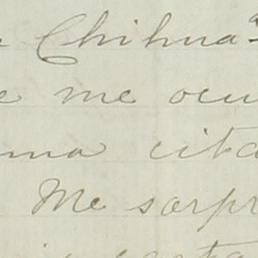 Chihua^a
me ocu
ma cita
Me sorpr